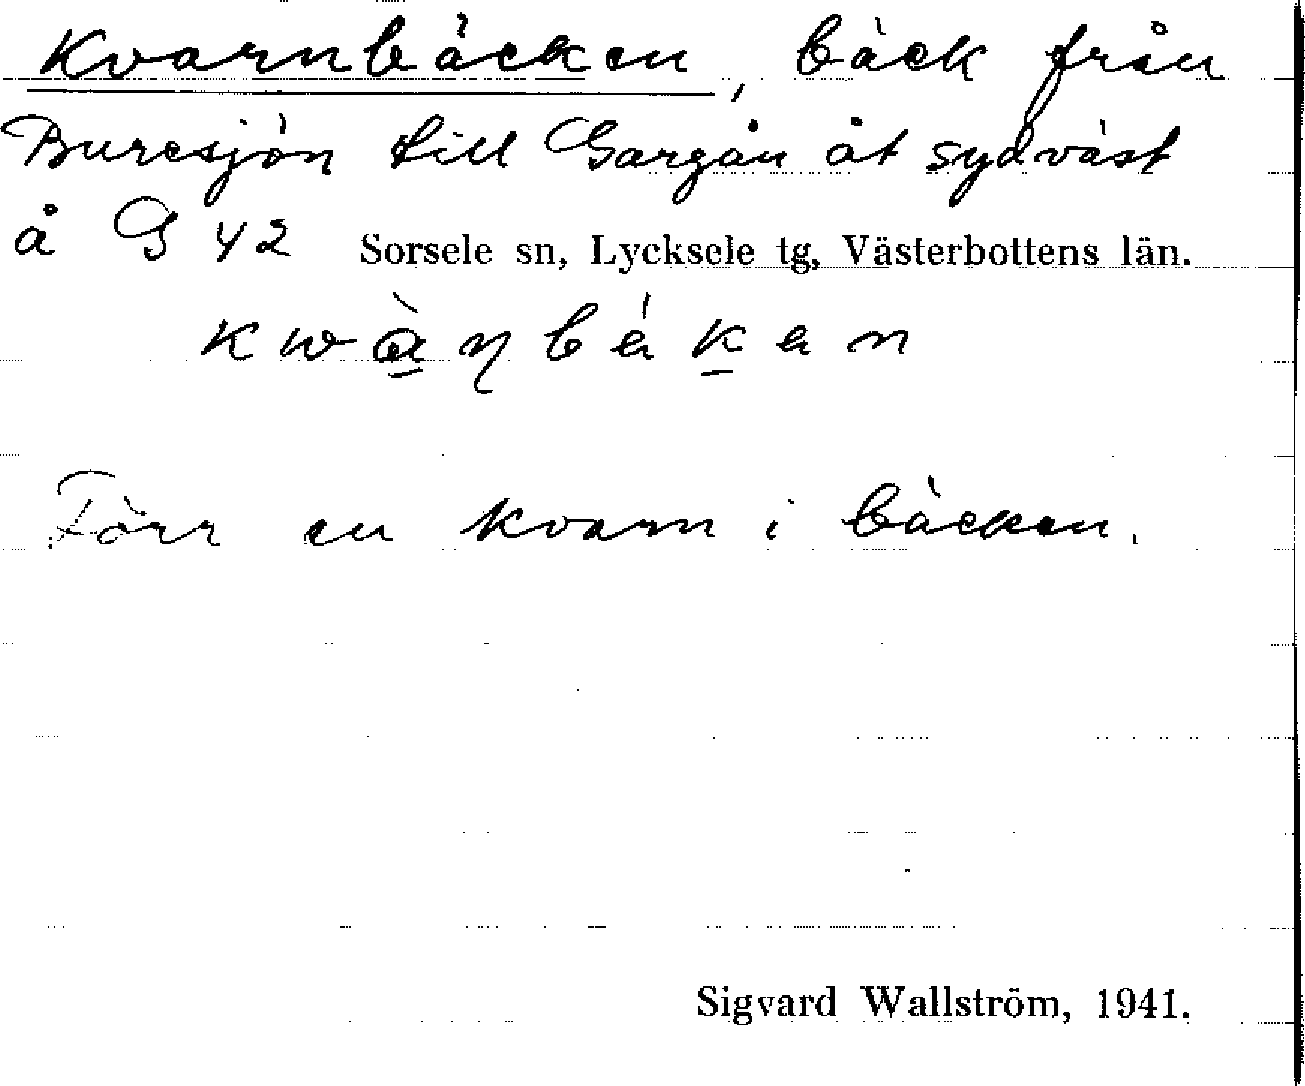 Kvarnbäcken, bäck från
Buresjön till Gargån åt sydväst
å G 42 Sorsele sn, Lycksele tg, Västerbottens län.
Förr en kvarn i bäcken.
Sigvard Wallström, 1941.